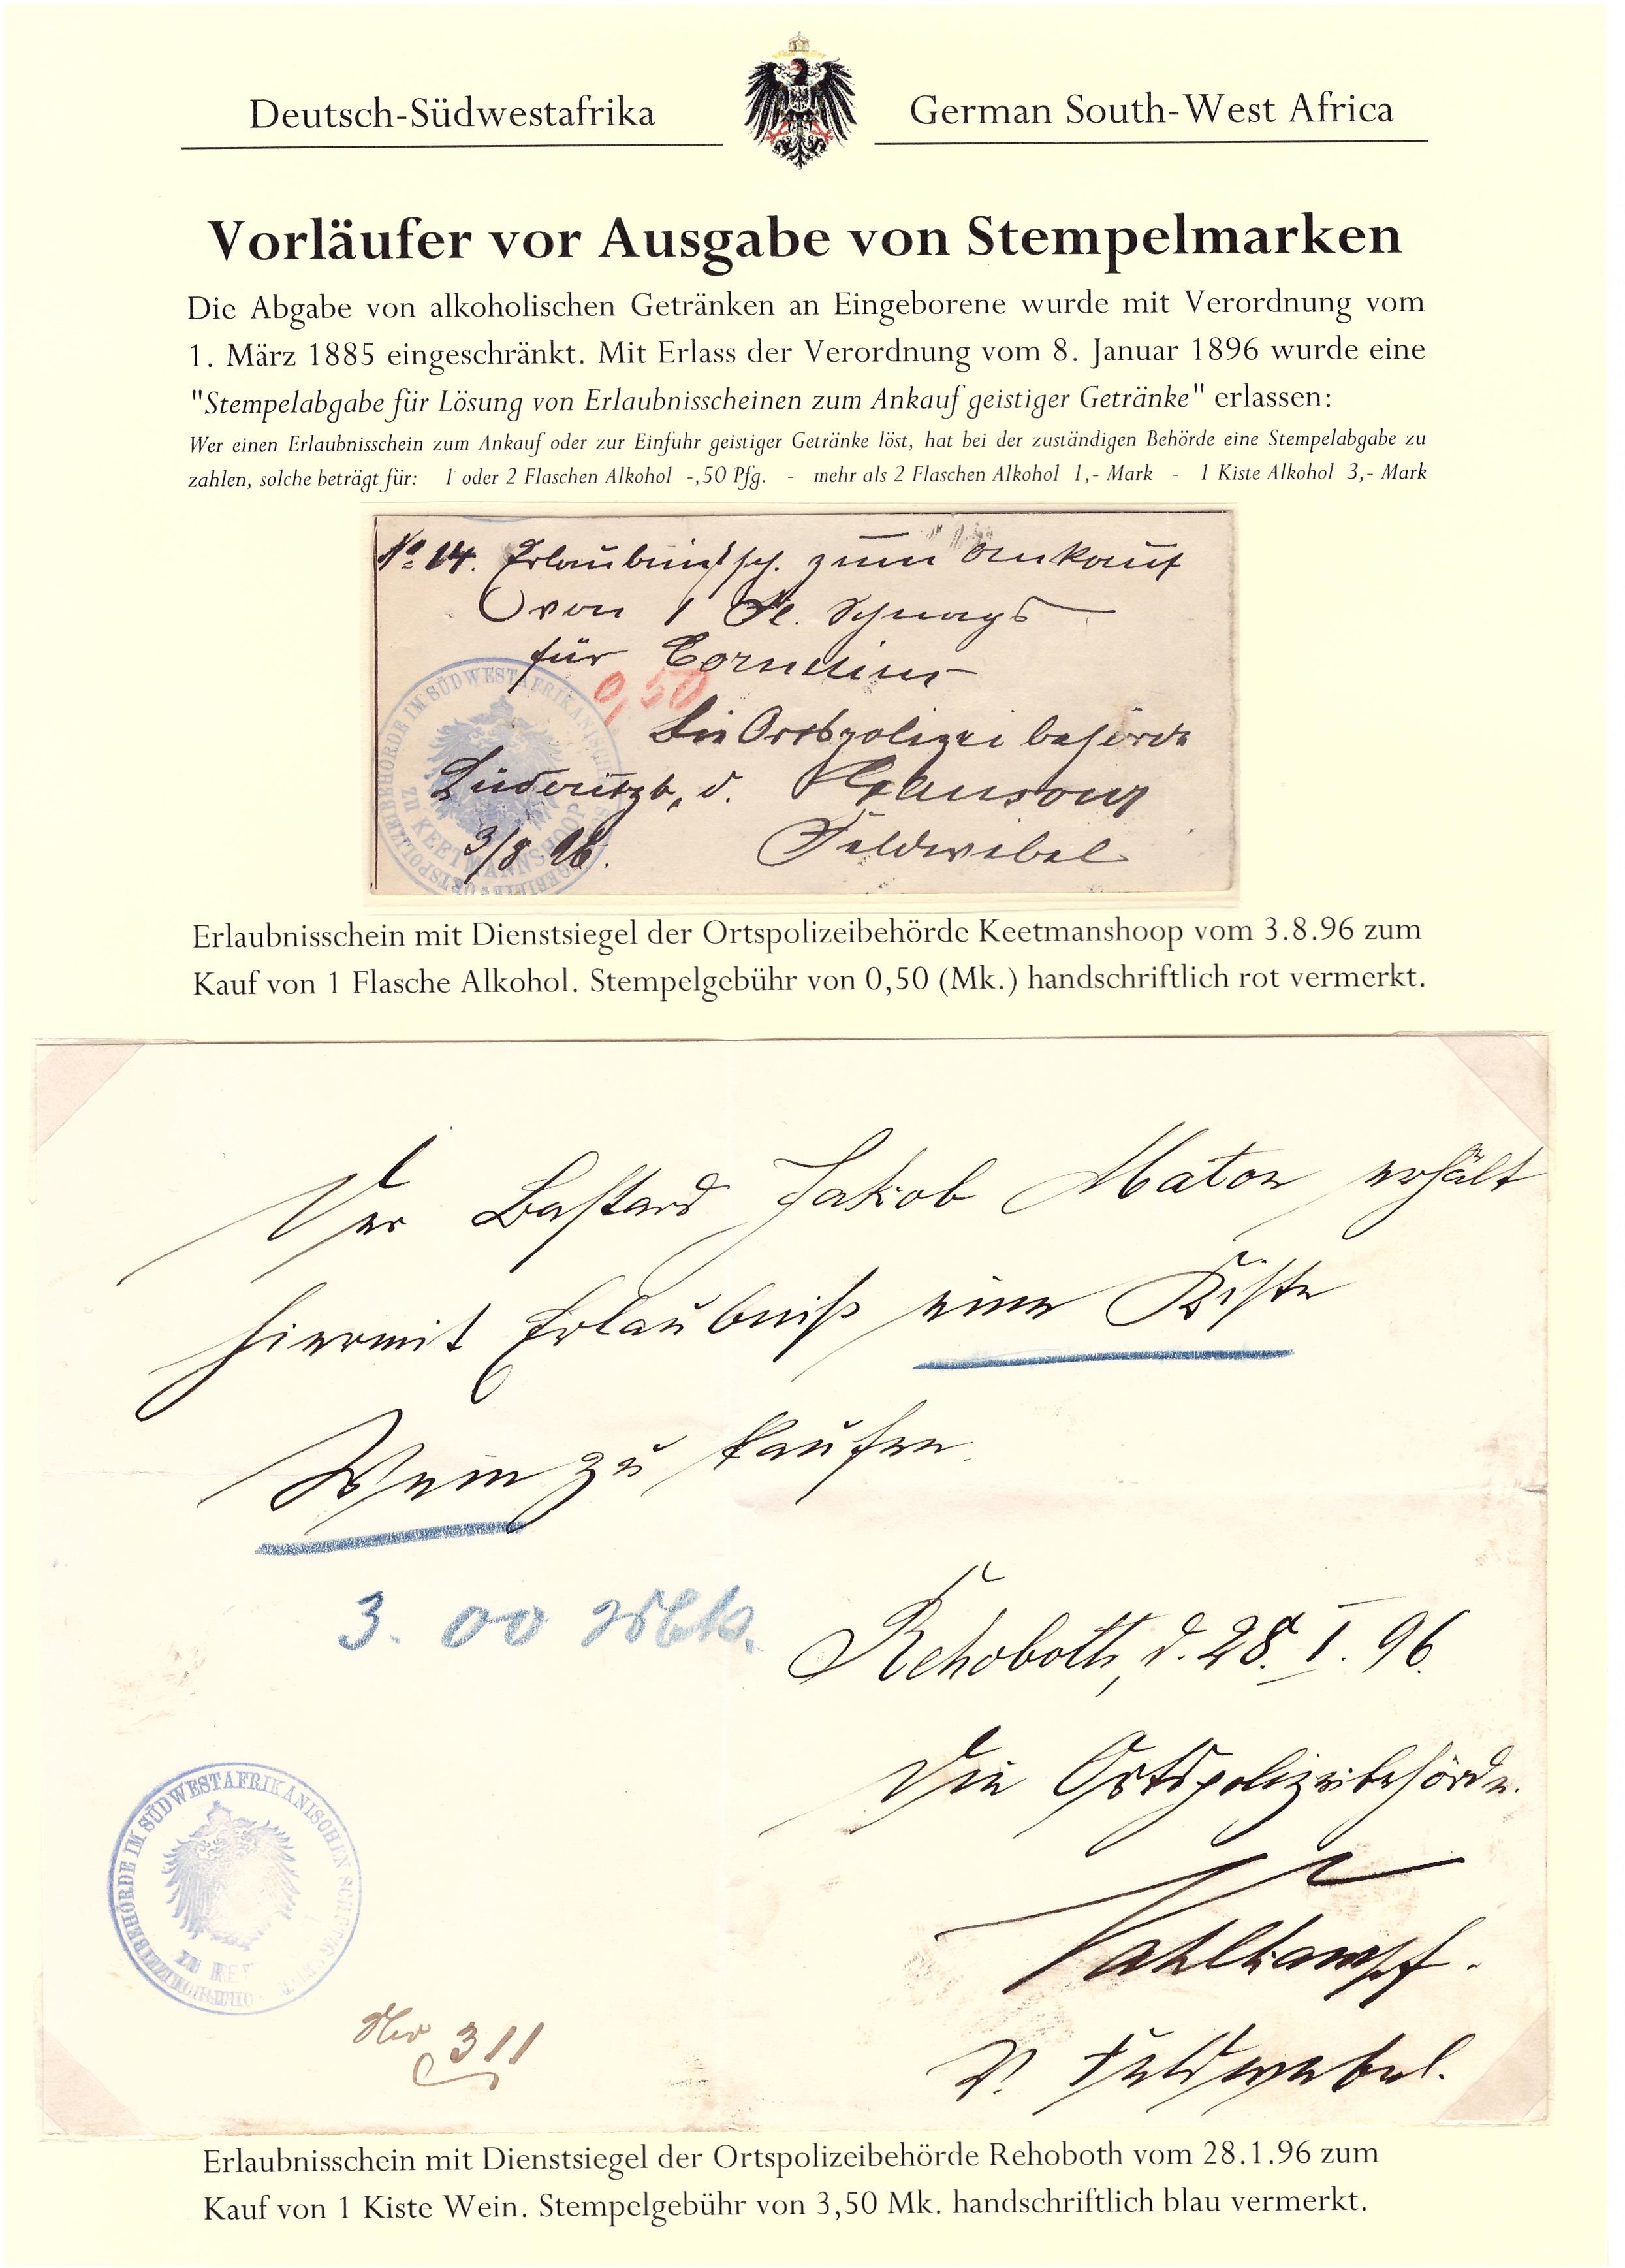 Deutsch-Südwestafrika
German South-West Africa
Vorläufer vor Ausgabe von Stempelmarken
Die Abgabe von alkoholischen Getränken an Eingeborene wurde mit Verordnung vom
1. März 1885 eingeschränkt. Mit Erlass der Verordnung vom 8. Januar 1896 wurde eine
"Stempelabgabe für Lösung von Erlaubnisscheinen zum Ankauf geistiger Getränke" erlassen:
Wer einen Erlaubnisschein zum Ankauf oder zur Einfuhr geistiger Getränke löst, hat bei der zuständigen Behörde eine Stempelabgabe zu
zahlen, solche beträgt für: 1 oder 2 Flaschen Alkohol -,50 Pfg. - mehr als 2 Flaschen Alkohol 1,- Mark - 1 Kiste Alkohol 3,- Mark
No 14. Erlaubnißsch. zum Ankauf
von 1 Fl. Schnaps
für Cornelius
0,50
Die Ortspolizeibehörde
Lüderitzb., d.
3/8 96.
Feldwebel
ORTSPOLIZEIBEHÖRDE IM SÜDWESTAFRIKANISCHEN
ZU KEETMANNSHOOP
Erlaubnisschein mit Dienstsiegel der Ortspolizeibehörde Keetmanshoop vom 3.8.96 zum
Kauf von 1 Flasche Alkohol. Stempelgebühr von 0,50 (Mk.) handschriftlich rot vermerkt.
Der Bastard Jakob Mator erhält
hiermit Erlaubniß eine Kiste
Wein zu kaufen.
3.00 Mk.
Rehoboth, d. 28. I. 96.
Die Ortspolizeibehörde.
Vahlkampf.
V. Feldwebel.
IM SÜDWESTAFRIKANISCHEN
Nr 311
Erlaubnisschein mit Dienstsiegel der Ortspolizeibehörde Rehoboth vom 28.1.96 zum
Kauf von 1 Kiste Wein. Stempelgebühr von 3,50 Mk. handschriftlich blau vermerkt.